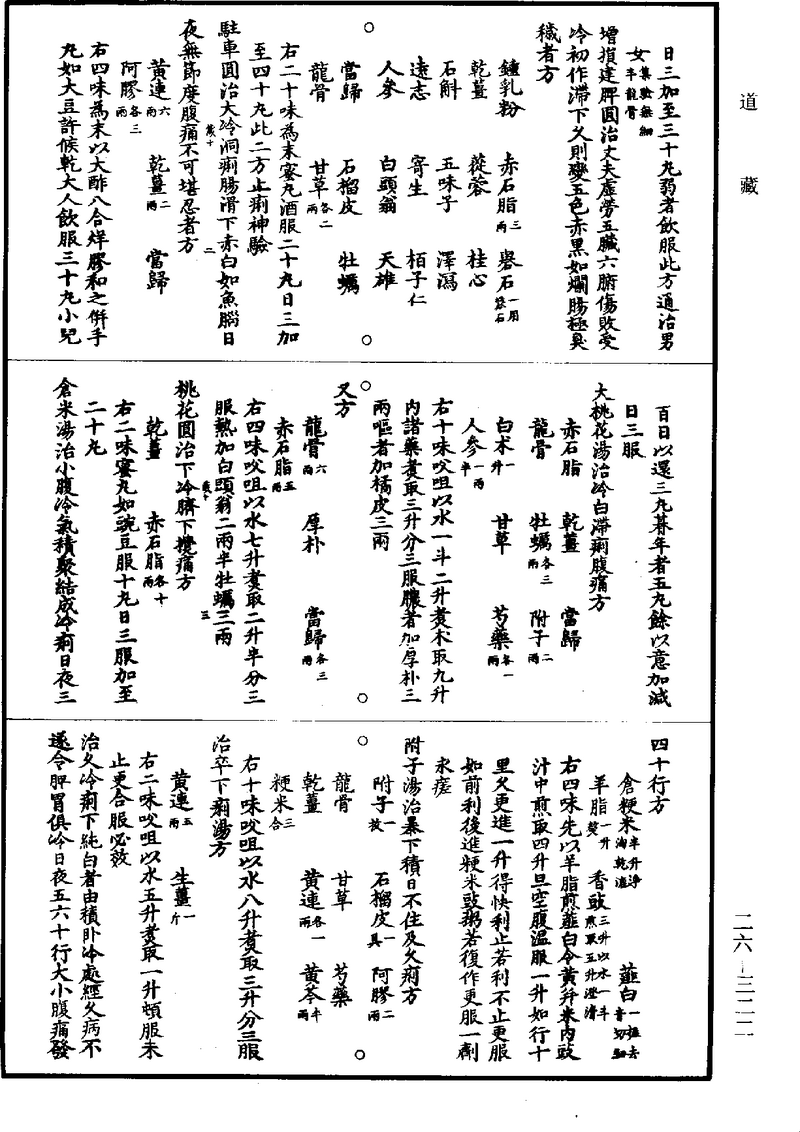 道藏
日三加至三十丸弱者飲服此方通治男
女集驗無細辛龍骨
增損建脾圓治丈夫虛勞五臟六腑傷敗受
冷初作滯下久則變五色赤黑如爛腸極臭
穢者方
鍾乳粉 赤石脂三兩 礜石一用礬石
乾薑 蓯蓉 桂心
石斛 五味子 澤瀉
遠志 寄生 栢子仁
人參 白頭翁 天雄
當歸 石榴皮 牡蠣
龍骨 甘草各二兩
右二十味為末蜜丸酒服二十丸日三加
至四十丸此二方止痢神驗
駐車圓治大冷洞痢腸滑下赤白如魚腦日
夜無節度腹痛不可堪忍者方
黃連六兩 乾薑二兩 當歸
阿膠各三兩
右四味為末以大酢八合烊膠和之併手
丸如大豆許候乾大人飲服三十丸小兒
百日以還三丸朞年者五丸餘以意加減
日三服
大桃花湯治冷白滯痢腹痛方
赤石脂 乾薑 當歸
龍骨 牡蠣各三兩 附子二兩
白朮一升 甘草 芍藥各一兩
人參一兩半
右十味㕮咀以水一斗二升煑朮取九升
內諸藥煑取三升分三服膿者加厚朴三
兩嘔者加橘皮三兩
又方
龍骨六兩 厚朴 當歸各三兩
赤石脂五兩
右四味㕮咀以水七升煑取二升半分三
服熱加白頭翁二兩半牡蠣三兩
桃花圓治下冷臍下攪痛方
乾薑 赤石脂各十兩
右二味蜜丸如豌豆服十丸日三服加至
二十丸
倉米湯治小腹冷氣積聚結成冷痢日夜三
四十行方
倉粳米半升淨淘乾漉 薤白一握去青切細
羊脂一升熬 香豉三升以水一斗煎取五升澄清
右四味先以羊脂煎薤白令黃并米內豉
汁中煎取四升旦空腹溫服一升如行十
里久更進一升得快利止若利不止更服
如前利後進粳米豉粥若復作更服一劑
永瘥
附子湯治暴下積日不住及久痢方
附子一枚 石榴皮一具 阿膠二兩
龍骨 甘草 芍藥
乾薑 黃連各一兩 黃芩半兩
粳米三合
右十味㕮咀以水八升煑取三升分三服
治卒下痢湯方
黃連五兩 生薑一斤
右二味㕮咀以水五升煑取一升頓服未
止更合服必效
治久冷痢下純白者由積臥冷處經久病不
遂令脾胃俱冷日夜五六十行大小腹痛發
二六—三二二